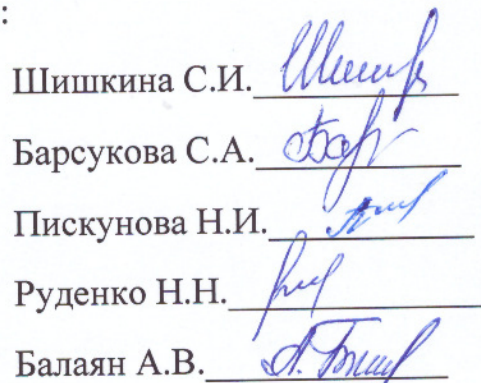 :
Шишкина С.И.
Барсукова С.А.
Пискунова Н.И.
Руденко Н.Н.
Балаян А.В.